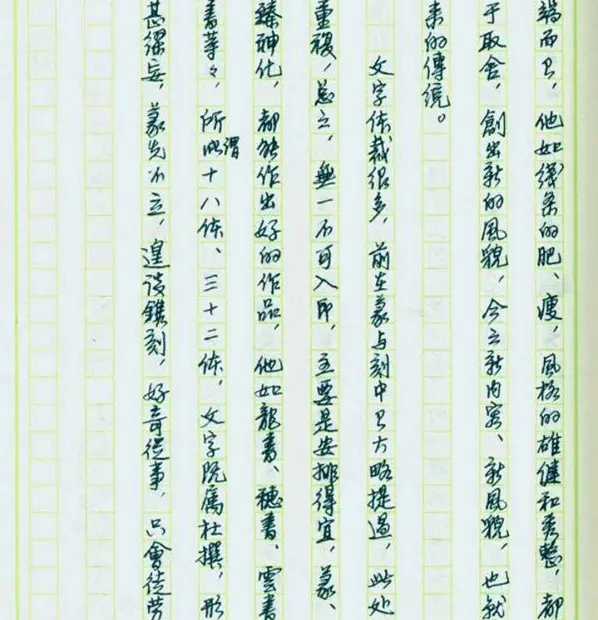 端而已，他如线条的肥、瘦，風格的雄健和秀整，都
于取舍，創出新的風貌，今云新内容、新風貌，也就
来的傳統。
文字体裁很多，前在篆与刻中已大略提過，此处
重複，总之，無一不可入印，主要是安排得宜，篆、
臻神化，都能作出好的作品，他如龍書、穗書、雲書
書等々，所謂十八体、三十二体，文字既属杜撰，形
甚谬妄，篆先不立，遑谈鐫刻，好奇從事，只會徒劳